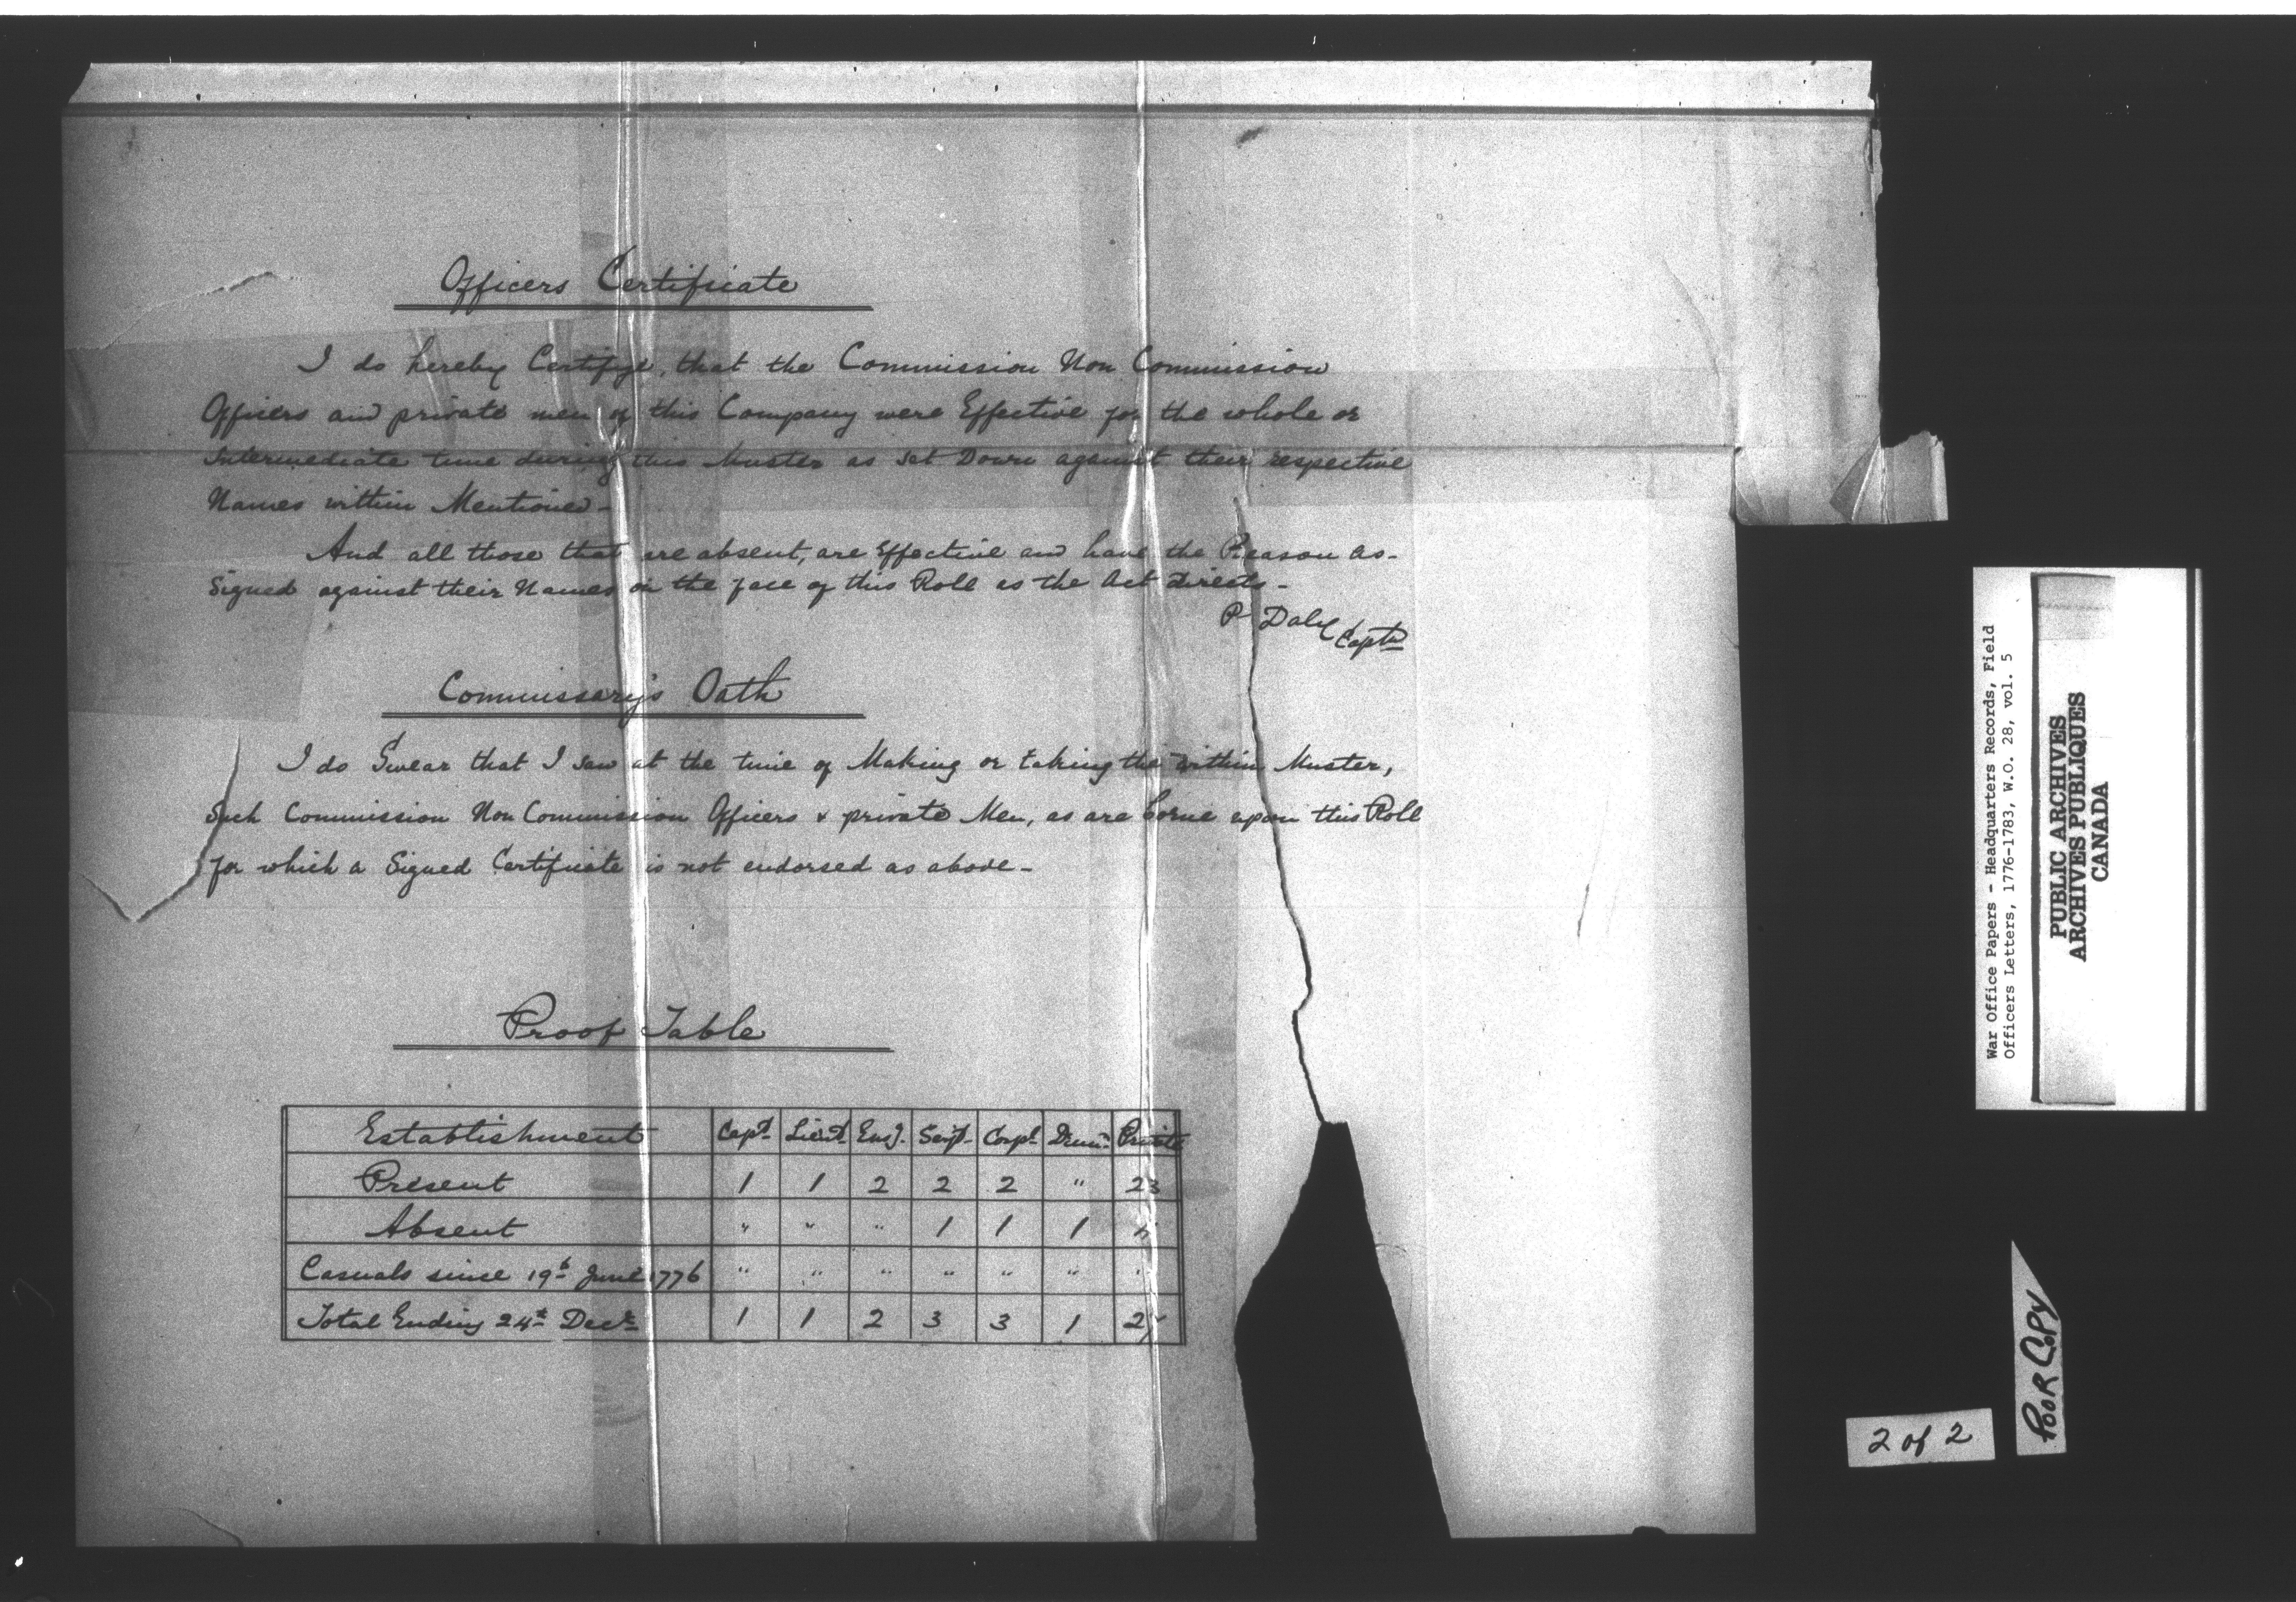 Officers Certificate
I do hereby Certifye, that the Commission Non Commission
Officers and private men of this Company were Effective for the whole or
Intermediate time during this Muster as set Down against their respective
Names within Mentioned-
And all those that are absent, are Effective and have the Reason as-
signed against their Names on the face of this Roll as the Act directs-
P Daly Captn
Commissary's Oath
I do Swear that I saw at the time of Making or taking the within Muster,
Such Commission Non Commission Officers & private Men, as are borne upon this Roll
for which a Signed Certificate is not endorsed as above-
Proof Table
Establishment Capt. Lieut. Ens. Serjt. Corpl. Drum. Private
Present 1 1 2 2 2 " 23
Absent " " " 1 1 1
Casuals since 19th June 1776 " " " " " " "
Total Ending 24th Decr 1 1 2 3 3 1
War Office Papers - Headquarters Records, Field
Officers Letters, 1776-1783, W.O. 28, vol. 5
PUBLIC ARCHIVES
ARCHIVES PUBLIQUES
CANADA
POOR COPY
2 of 2